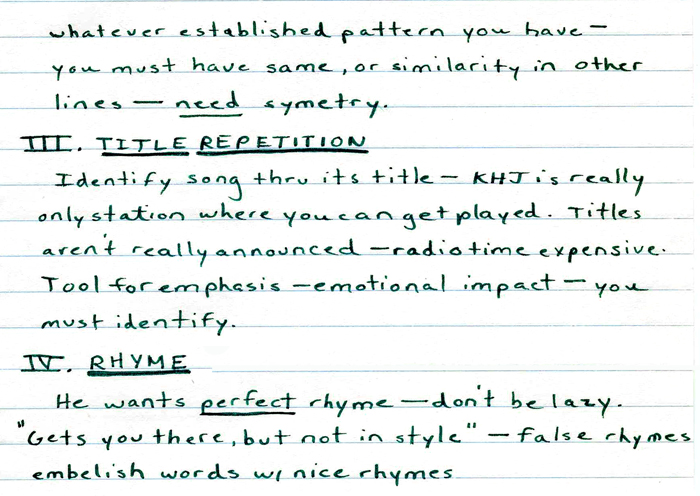 whatever established pattern you have —
you must have same, or similarity in other
lines — need symetry.
III. TITLE REPETITION
Identify song thru its title — KHJ is really
only station where you can get played. Titles
aren't really announced — radio time expensive.
Tool for emphasis — emotional impact — you
must identify.
IV. RHYME
He wants perfect rhyme — don't be lazy.
"Gets you there, but not in style" — false rhymes
embelish words w/ nice rhymes